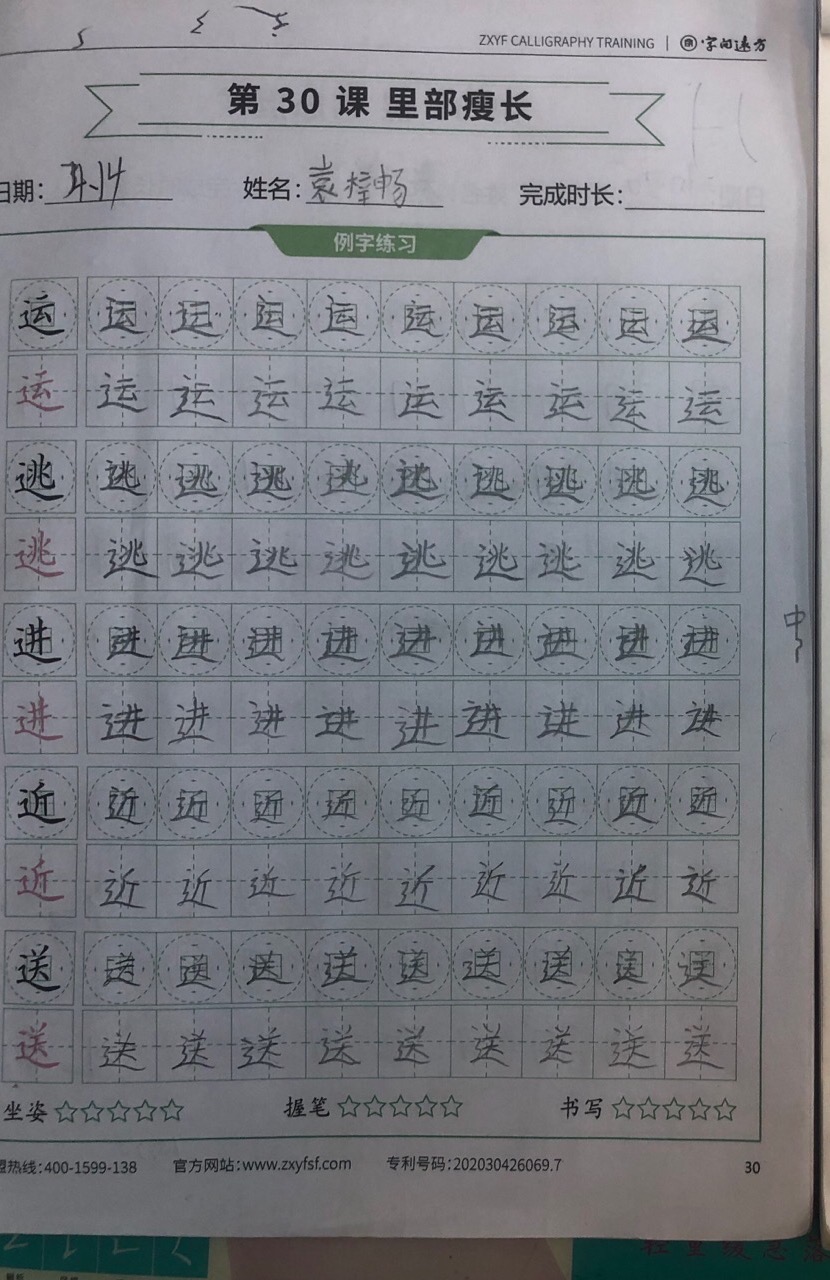 ZXYF CALLIGRAPHY TRAINING | 字间远方
第 30 课 里部瘦长
日期: 姓名:袁梓畅 完成时长:
例字练习
运 运 运 运 运 运 运 运 运 运
运 运 运 运 运 运 运 运 运 运
逃 逃 逃 逃 逃 逃 逃 逃 逃 逃
逃 逃 逃 逃 逃 逃 逃 逃 逃 逃
进 进 进 进 进 进 进 进 进 进
中
进 进 进 进 进 进 进 进 进 进
近 近 近 近 近 近 近 近 近 近
近 近 近 近 近 近 近 近 近 近
送 送 送 送 送 送 送 送 送 送
送 送 送 送 送 送 送 送 送 送
坐姿☆☆☆☆☆ 握笔☆☆☆☆☆ 书写☆☆☆☆☆
盟热线:400-1599-138 官方网站:www.zxyfsf.com 专利号码:202030426069.7 30